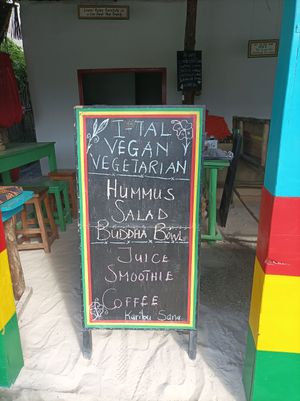 I-TAL
VEGAN
VEGETARIAN
HUMMUS
SALAD
BUDDHA BOWL
JUICE
SMOOTHIE
COFFEE
Karibu Sana